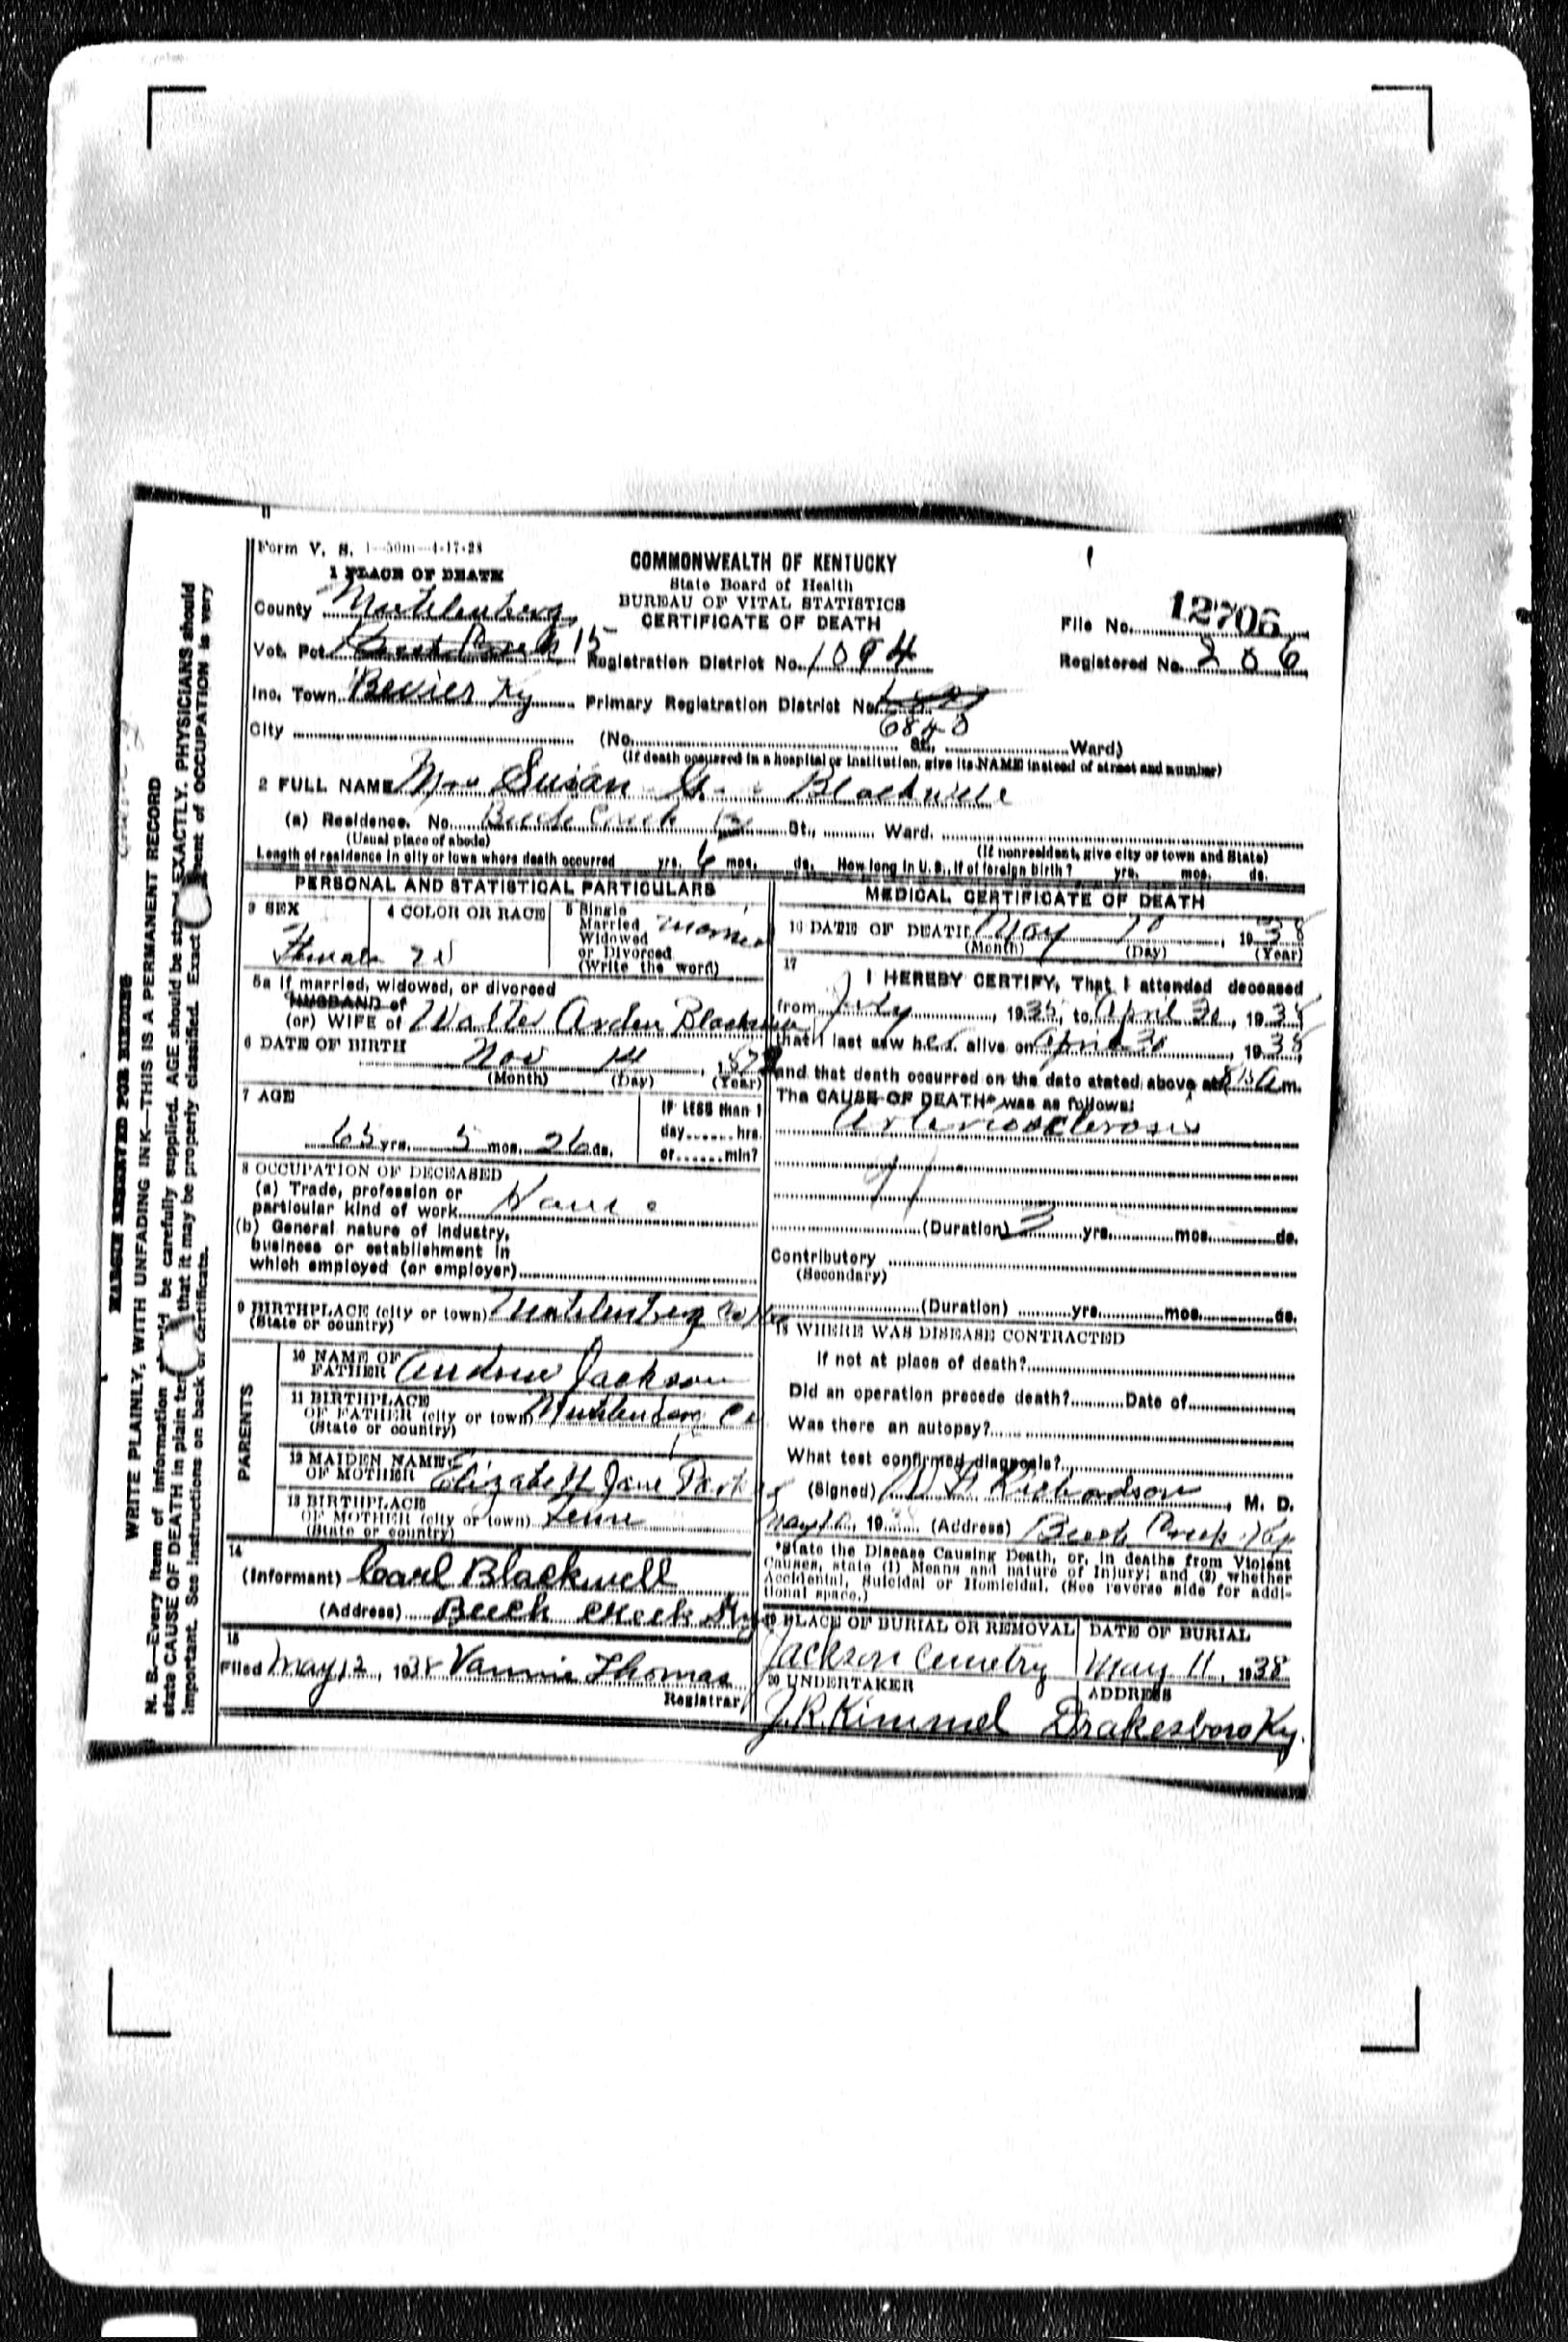 Form V. S. 1—50m—4-17-28
1 PLACE OF DEATH
COMMONWEALTH OF KENTUCKY
State Board of Health
BUREAU OF VITAL STATISTICS
CERTIFICATE OF DEATH
County Muhlenberg
File No. 12706
Vot. Pct. 15 Registration District No. 1094
Registered No. 286
Inc. Town Bevier Ky Primary Registration District No.
6840
City (No. St., Ward)
(If death occurred in a hospital or institution, give its NAME instead of street and number)
2 FULL NAME Mrs Susan G. Blackwell
(a) Residence. No. Beech Creek St., Ward.
(Usual place of abode) (If nonresident, give city or town and State)
Length of residence in city or town where death occurred yrs. 6 mos. ds. How long in U. S., if of foreign birth? yrs. mos. ds.
PERSONAL AND STATISTICAL PARTICULARS
3 SEX
Female
4 COLOR OR RACE
W
5 Single
Married
Widowed
or Divorced
(Write the word)
Married
5a If married, widowed, or divorced
HUSBAND of
(or) WIFE of Walter Arden Blackwell
6 DATE OF BIRTH
Nov 14
(Month) (Day) (Year)
7 AGE
65 yrs. 5 mos. 26 ds.
IF LESS than 1
day......hrs.
or......min?
8 OCCUPATION OF DECEASED
(a) Trade, profession or
particular kind of work
(b) General nature of industry,
business or establishment in
which employed (or employer)
9 BIRTHPLACE (city or town) Muhlenberg Co Ky
(State or country)
PARENTS
10 NAME OF
FATHER Andrew Jackson
11 BIRTHPLACE
OF FATHER (city or town) Muhlenberg Co
(State or country)
12 MAIDEN NAME
OF MOTHER Elizabeth Jane
13 BIRTHPLACE
OF MOTHER (city or town) Tenn
(State or country)
14
(Informant) Carl Blackwell
(Address) Beech Creek Ky
15
Filed May 12, 1938 Vannie Thomas
Registrar
MEDICAL CERTIFICATE OF DEATH
16 DATE OF DEATH May 10, 1938
(Month) (Day) (Year)
17
I HEREBY CERTIFY, That I attended deceased
from July, 1935, to April 30, 1938
that I last saw her alive on April 30, 1938,
and that death occurred on the date stated above at m.
The CAUSE OF DEATH* was as follows:
Arteriosclerosis
97
(Duration) 3 yrs. mos. ds.
Contributory
(Secondary)
(Duration) yrs. mos. ds.
18 WHERE WAS DISEASE CONTRACTED
If not at place of death?
Did an operation precede death? Date of
Was there an autopsy?
What test confirmed diagnosis?
(Signed) Richardson, M. D.
19 (Address) Beech Creek Ky
*State the Disease Causing Death, or, in deaths from Violent
Causes, state (1) Means and nature of Injury; and (2) whether
Accidental, Suicidal or Homicidal. (See reverse side for addi-
tional space.)
19 PLACE OF BURIAL OR REMOVAL
Jackson Cemetry
DATE OF BURIAL
May 11, 1938
20 UNDERTAKER
J.R. Kimmel
ADDRESS
Drakesboro Ky.
MARGIN RESERVED FOR BINDING
WRITE PLAINLY, WITH UNFADING INK—THIS IS A PERMANENT RECORD
N. B.—Every item of information be carefully supplied. AGE should be EXACTLY. PHYSICIANS should
state CAUSE OF DEATH in plain that it may be properly classified. Exact of OCCUPATION is very
important. See instructions on back of certificate.